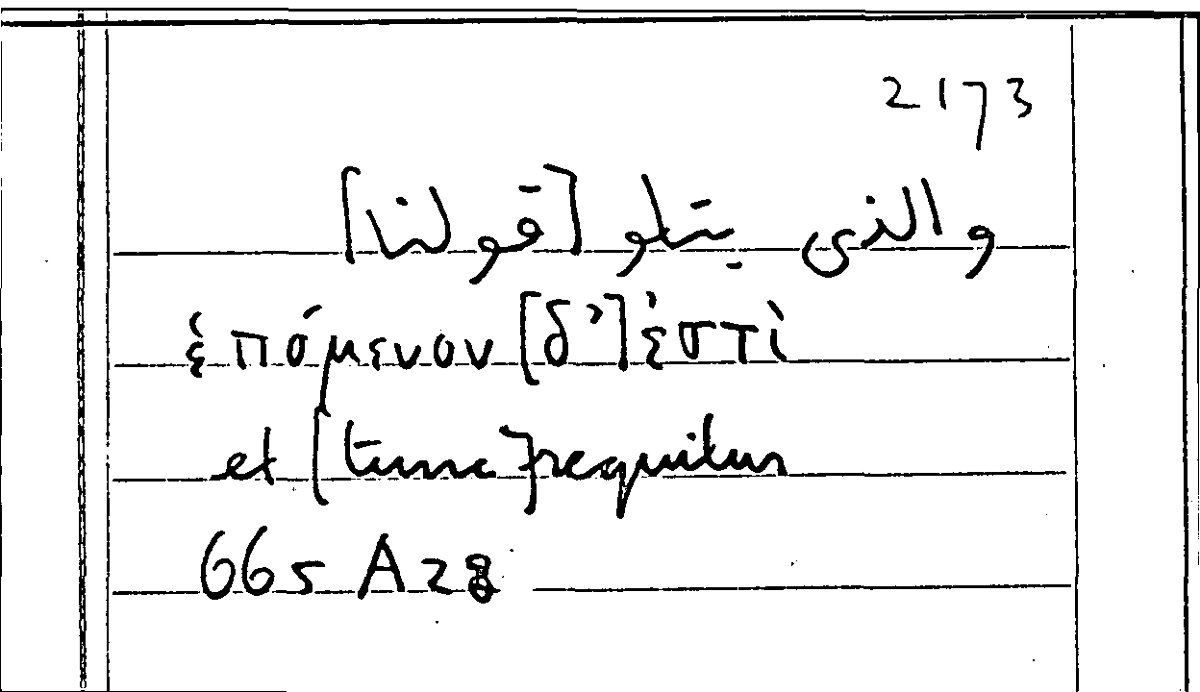 2173
والذى يتلو [قولنا]
ἑπόμενον [δ’] ἐστὶ
et [tunc] sequitur
665 A 28